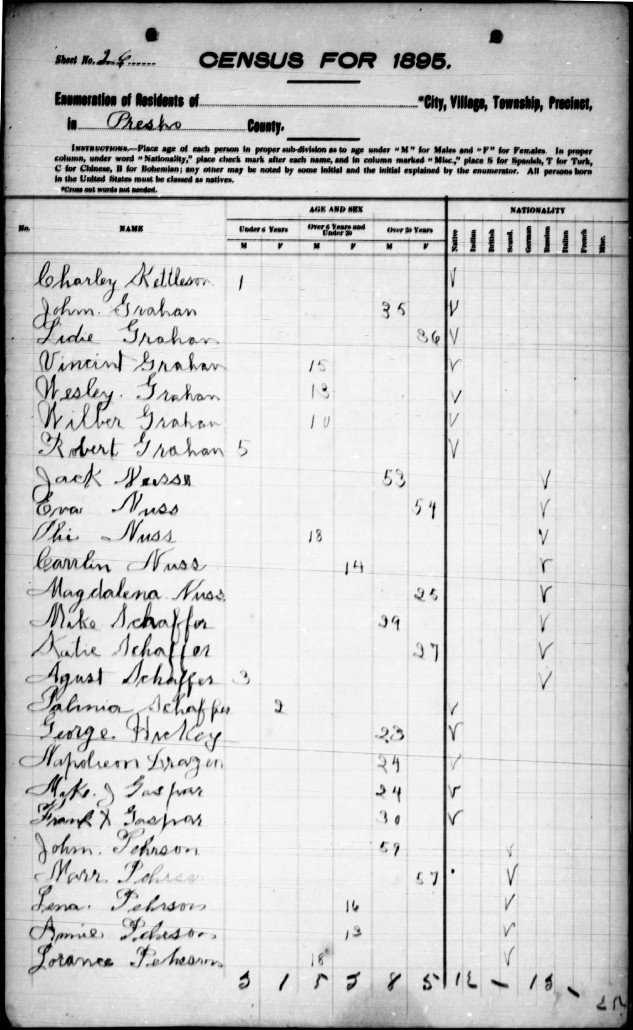 Sheet No. 26
CENSUS FOR 1895.
Enumeration of Residents of *City, Village, Township, Precinct,
in Presho County.
INSTRUCTIONS.—Place age of each person in proper sub-division as to age under "M" for Males and "F" for Females. In proper
column, under word "Nationality," place check mark after each name, and in column marked "Misc.," place S for Spanish, T for Turk,
C for Chinese, B for Bohemian; any other may be noted by some initial and the initial explained by the enumerator. All persons born
in the United States must be classed as natives.
*Cross out words not needed.
AGE AND SEX NATIONALITY
No. NAME Under 6 Years Over 6 Years and Under 20 Over 20 Years Native Indian British Scand. German Russian Italian French Misc.
M F M F M F
Charley Kettleson 1 √
John. Grahan 35 √
Lidie Grahan 36 √
Vincint Grahan 15 √
Wesley. Grahan 13 √
Wilber Grahan 10 √
Robert Grahan 5 √
Jack Nuss 53 √
Eva Nuss 54 √
Phi Nuss 18 √
Carrlin Nuss 14 √
Magdalena Nuss 25 √
Mike Schaffer 29 √
Katie Schaffer 27 √
Agust Schaffer 3 √
Schaffer 2 √
George Hickey 23 √
Napoleon Dragon 24 √
Mike. J Gaspar 24 √
Frank X Gaspar 30 √
John. Pehrson 59 √
Marr. Pehrson 57 √
Lena. Pehrson 16 √
Annie Pehrson 13 √
Lorance Pehrson 18 √
3 1 5 3 8 5 12 - 13 -